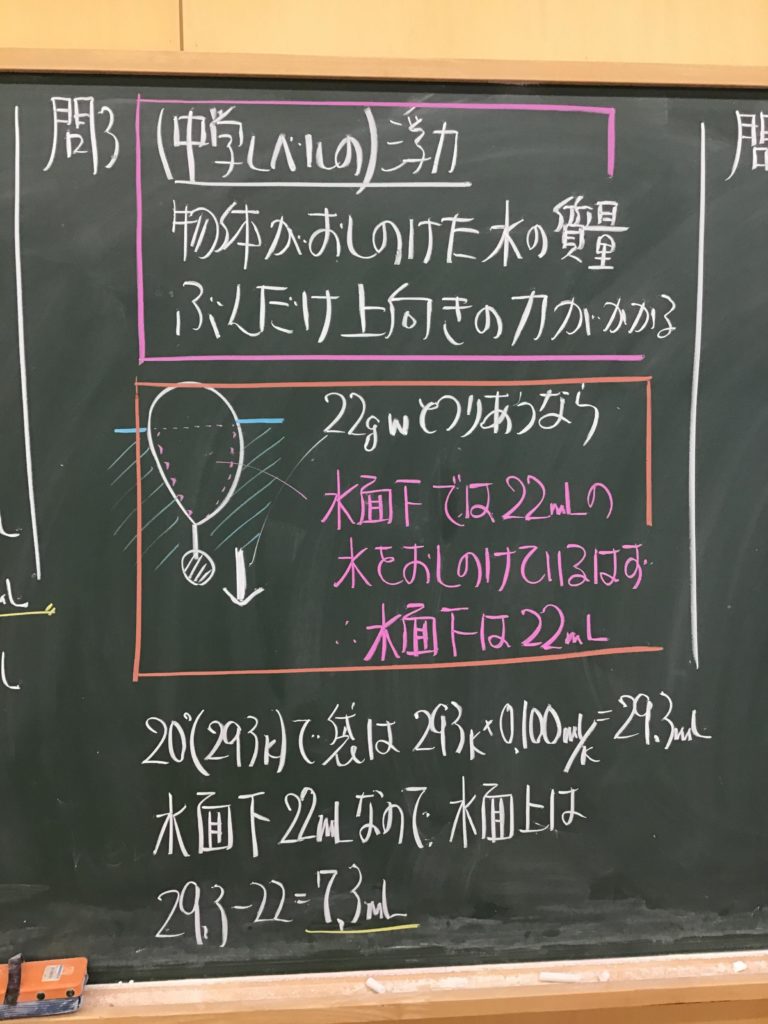 問3
(中学レベルの)浮力
物体がおしのけた水の質量
ぶんだけ上向きの力がかかる
22gwとつりあうなら
水面下では22mLの
水をおしのけているはず
∴水面下は22mL
20°(293K)で袋は 293K×0.100mL/K=29.3mL
水面下22mLなので、水面上は
29.3-22=7.3mL
問
mL
L